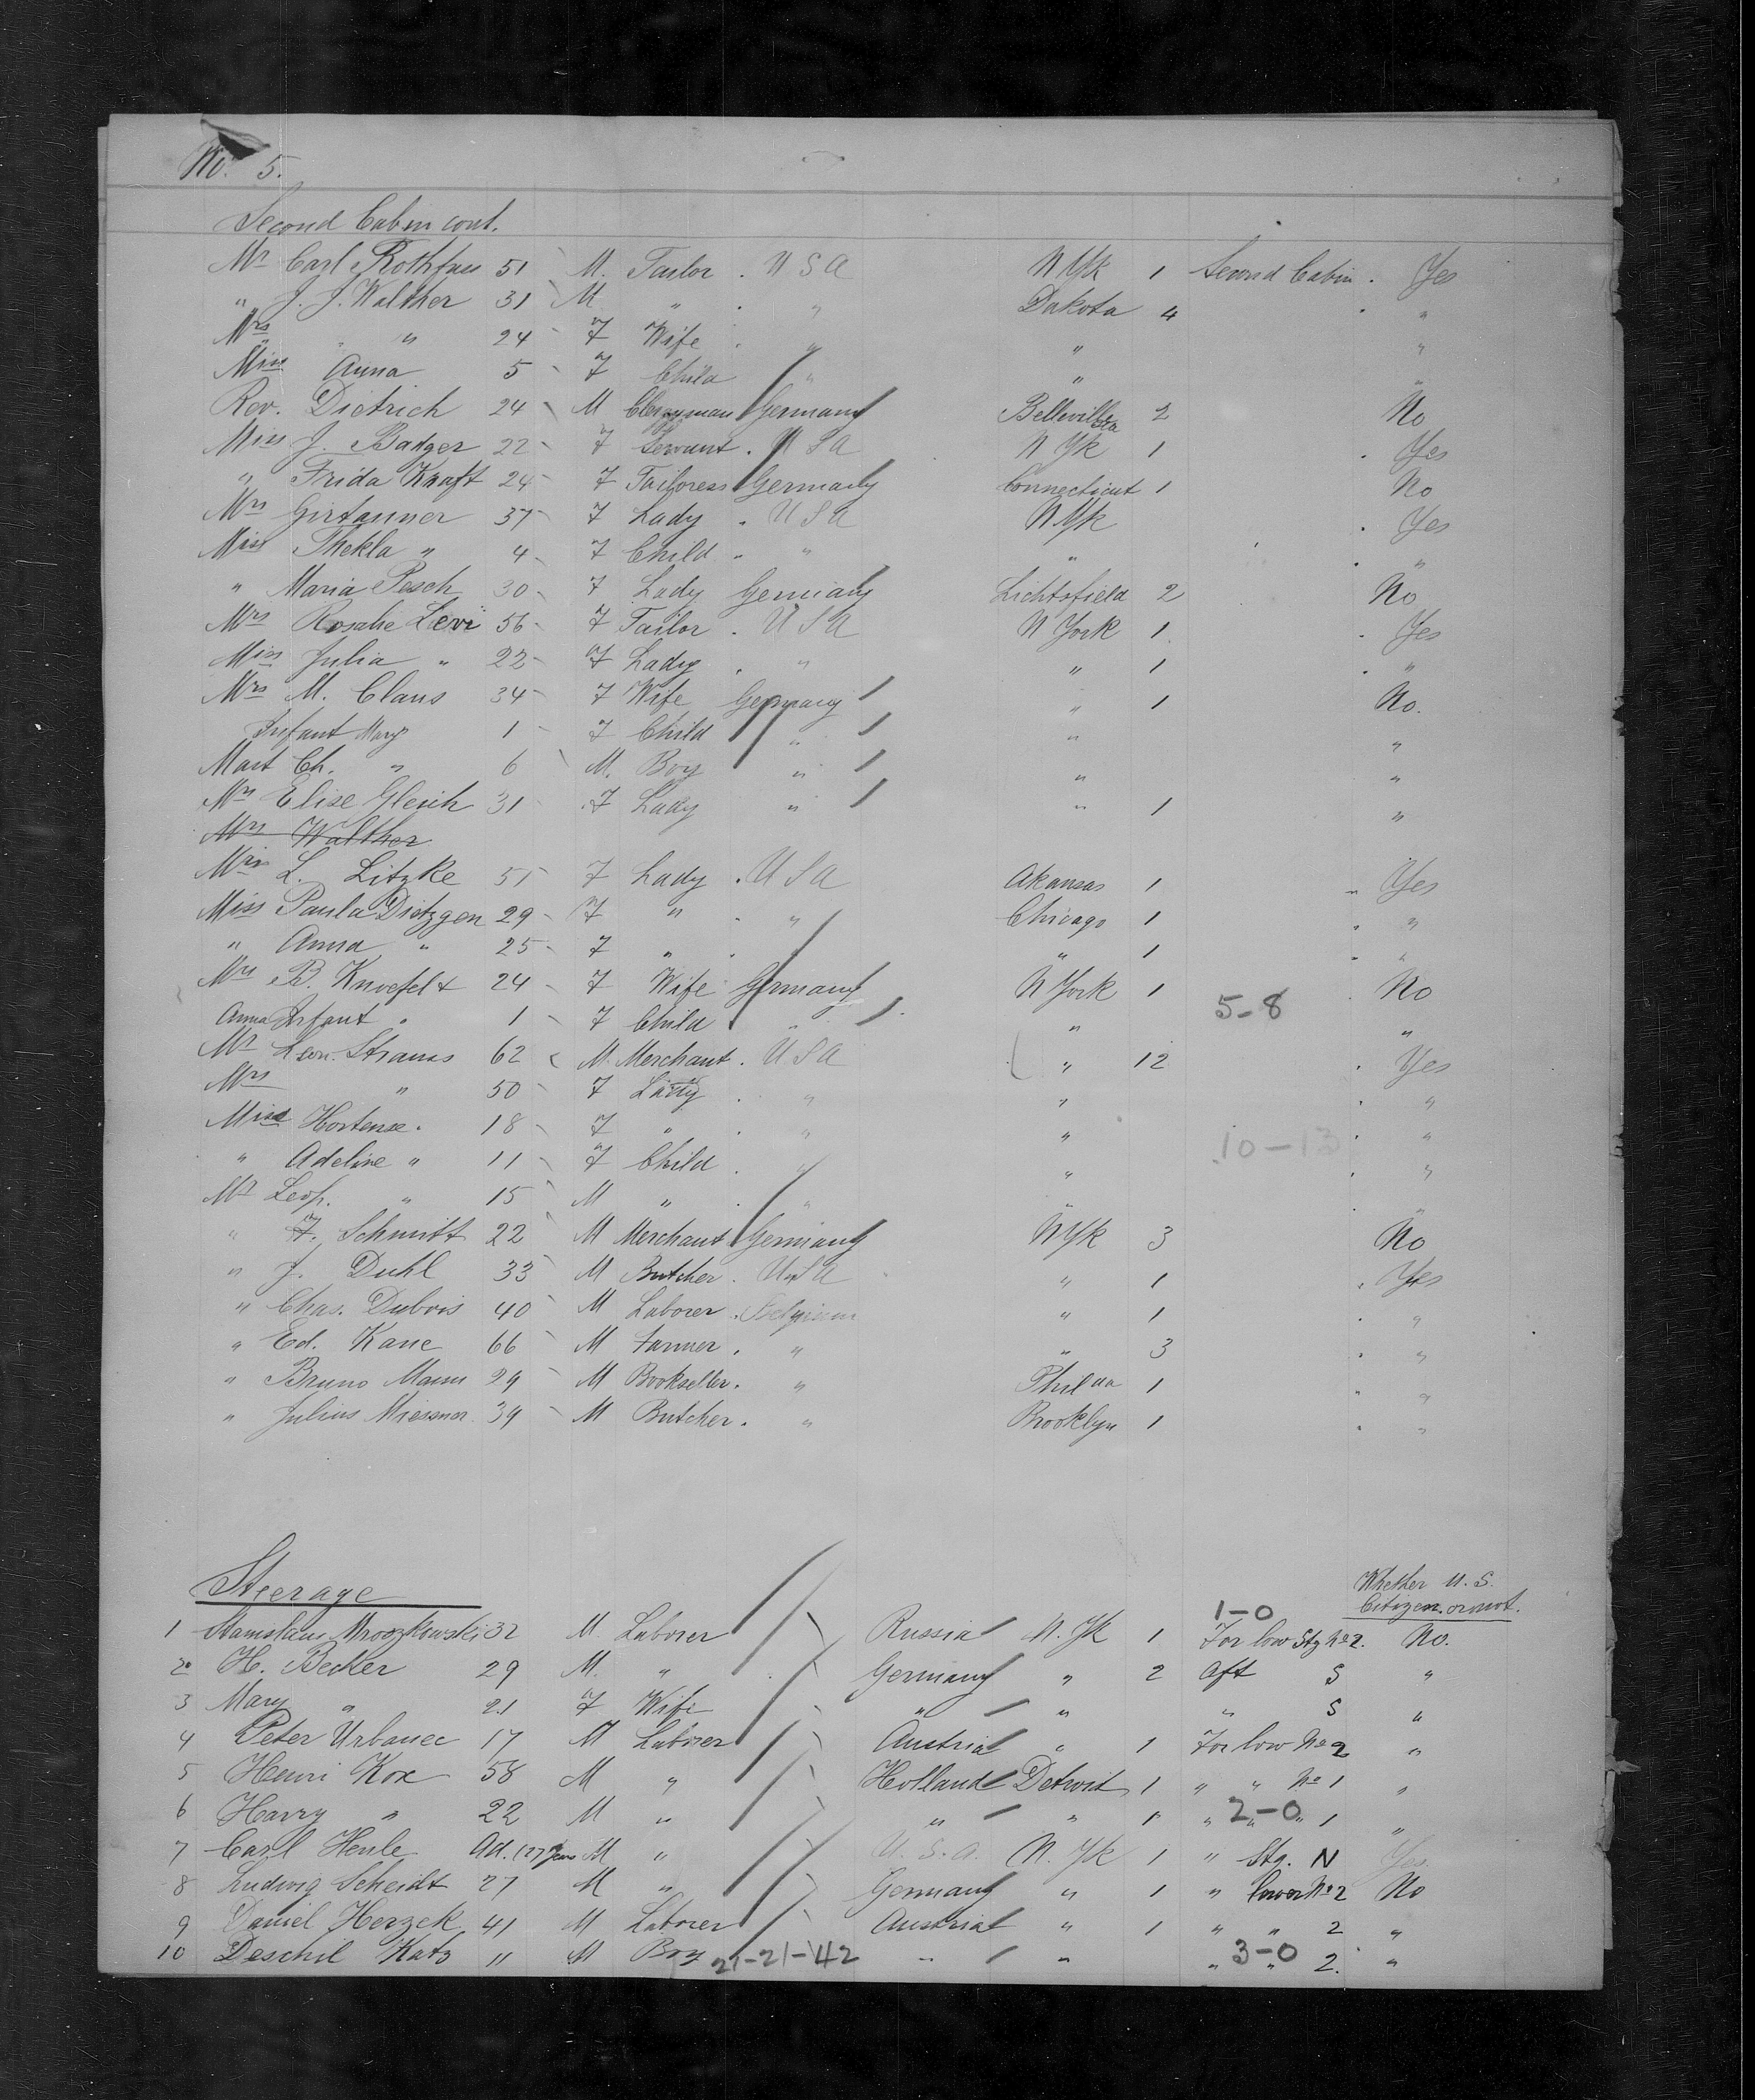 No. 5.
Second Cabin cont.
Mr Carl Rothfuss 51 M. Tailor . U S A N Yk 1 Second Cabin . Yes
" J. J. Walther 31 M " . " Dakota 4 . "
Mrs " " 24 F Wife . " " "
Miss Anna 5 F Child " " "
Rev. Dietrich 24 M Clergyman Germany Belleville 2 No
Miss J. Badger 22 F Servant . U S A N Yk 1 . Yes
" Frida Kraft 24 F Tailoress Germany Connecticut 1 No
Mrs Girtanner 37 F Lady . U S A N Yk . Yes
Miss Thekla " 4 F Child . " " . "
" Maria Pesch 30 F Lady Germany Lichtsfield 2 No
Mrs Rosalie Levi 56 F Tailor . U S A N York 1 . Yes
Miss Julia " 22 F Lady . " " 1 . "
Mrs M. Claus 34 F Wife Germany " 1 No.
Infant Mary 1 F Child " " "
Mast Ch. " 6 M. Boy " " "
Mrs Elise Gleich 31 F Lady " " 1 "
Mrs Walther
Mrs L. Litzke 51 F Lady . U S A Akansas 1 " Yes
Miss Paula Dietzgen 29 F " . " Chicago 1 . "
" Anna " 25 F " . " 1 " "
Mrs B. Knoefelt 24 F Wife Germany N York 1 . No
5-8
Anna Infant " 1 F Child " " "
Mr Leon. Strauss 62 M. Merchant . U S A " 12 . Yes
Mrs " 50 F Lady . " " . "
Miss Hortense . 18 F " . " " . "
10-13
" Adeline " 11 F Child . " " . "
Mr Leop. " 15 M " . " " . "
" F. Schmitt 22 M Merchant Germany N Yk 3 No
" J. Duhl 33 M Butcher . U S A " 1 . Yes
" Chas. Dubois 40 M Laborer . Belgium " 1 . "
" Ed. Kane 66 M Farmer . " " 3 . "
" Bruno Mann 29 M Bookseller . " Philda 1 " "
" Julius Miessner 39 M Butcher . " Brooklyn 1 . "
Steerage
Whether U. S.
Citizen or not.
1-0
1 Stanislaus Mroczkowski 32 M Laborer Russia N. Yk 1 For low Stg No 2. No.
2 H. Becker 29 M. " Germany " 2 Aft S "
3 Mary " 21 F Wife " " " S "
4 Peter Urbanec 17 M Laborer Austria " 1 For low No 2 "
5 Henri Kox 58 M " Holland Detroit 1 " " No 1 "
6 Harry " 22 M " " " 1 " " " 1 "
2-0
7 Carl Henle Ad. (27 Years M " U. S. A. N. Yk 1 " Stg. N Yes
8 Ludwig Scheidt 27 M " Germany " 1 " lower No 2 No
9 Daniel Herzek 41 M Laborer Austria " 1 " " 2 "
10 Deschil Katz 11 M Boy " " " " 2. "
21-21-42 3-0